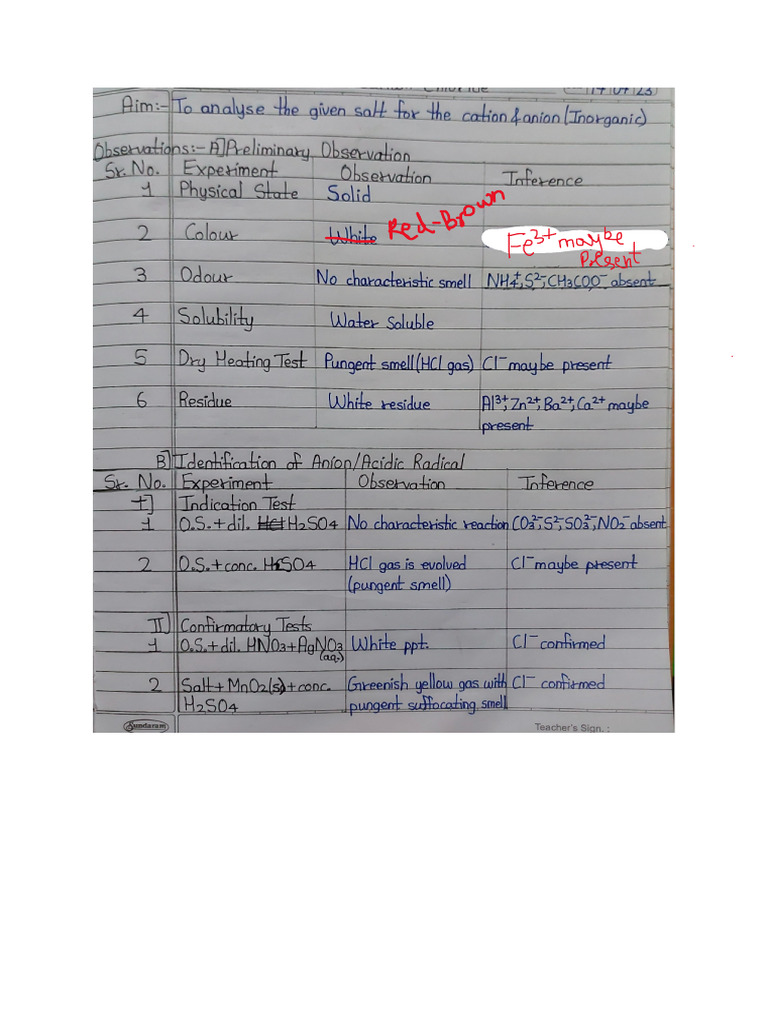 17/07/23
Aim:- To analyse the given salt for the cation & anion (Inorganic)
Observations:- A] Preliminary Observation
Sr. No. Experiment Observation Inference
1 Physical State Solid
2 Colour White Red-Brown Fe3+ maybe present
3 Odour No characteristic smell NH4+, S2-, CH3COO- absent
4 Solubility Water Soluble
5 Dry Heating Test Pungent smell (HCl gas) Cl- maybe present
6 Residue White residue Al3+, Zn2+, Ba2+, Ca2+ maybe
present
B] Identification of Anion/Acidic Radical
Sr. No. Experiment Observation Inference
I] Indication Test
1 O.S. + dil. HCl H2SO4 No characteristic reaction CO32-, S2-, SO32-, NO2- absent
2 O.S. + conc. H2SO4 HCl gas is evolved Cl- maybe present
(pungent smell)
II] Confirmatory Tests
1 O.S. + dil. HNO3 + AgNO3 (aq.) White ppt. Cl- confirmed
2 Salt + MnO2(s) + conc. Greenish yellow gas with Cl- confirmed
H2SO4 pungent suffocating smell
Sundaram Teacher's Sign. :